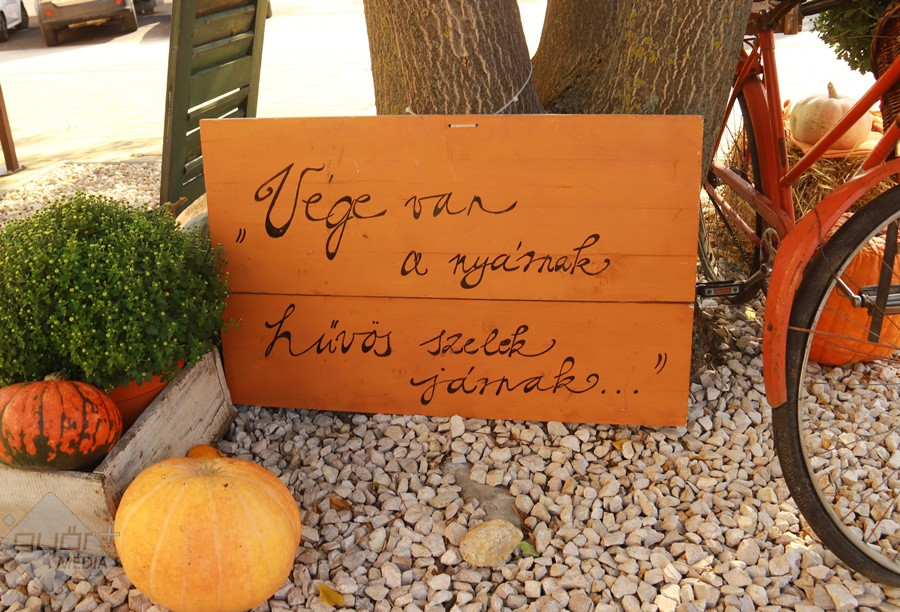 „Vége van
a nyárnak
hűvös szelek
járnak..."
GYŐR+
MÉDIA